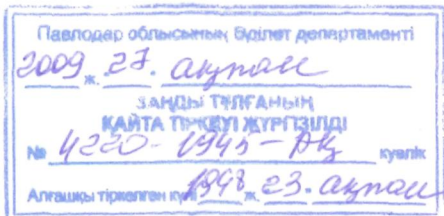 Павлодар облысының Әділет департаменті
2009 ж. 27. ақпан
ЗАҢДЫ ТҰЛҒАНЫҢ
ҚАЙТА ТІРКЕУІ ЖҮРГІЗІЛДІ
№ 4220-1945-АҚ куәлік
Алғашқы тіркелген күні 1998 ж. 23. ақпан